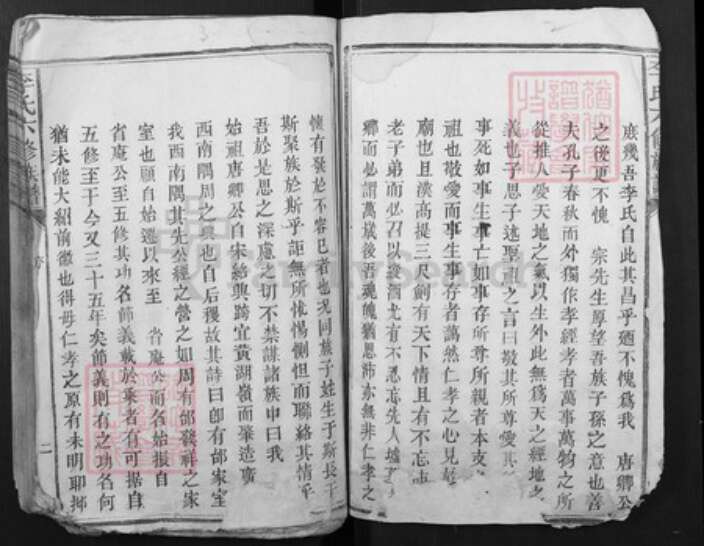 庶幾吾李氏自此其昌乎迺不愧爲我 唐卿公
之後更不愧 宗先生厚望吾族子孫之意也善
夫孔子春秋而外獨作孝經孝者萬事萬物之所
從推人受天地之氣以生外此無爲天之經地之
義也予思子述聖祖之言曰敬其所尊愛其
事死如事生事亡如事存所尊所親者本支
祖也敬愛而事生事存者藹然仁孝之心見於
廟也且漢高提三尺劍有天下情且有不忘
老子弟而必召以飲酒尤有不忍忘先人墟
鄉而必謂萬歲後吾魂魄猶思沛亦無非仁孝之
懷有發於不容已者也况同族子姓生于斯長于
斯聚族於斯乎詎無所怵惕惻怛而聯絡其情乎
吾於是思之深慮之切不禁謀諸族中曰我
始祖唐卿公自宋紹興跨宜黃湖嶺而肇造廣
西南隅周之興也自后稷故其詩曰卽有邰家室
我西南隅其先公經之營之如周有邰發祥之家
室也顧自始遷以來至 省庵公而名始振自
省庵公至五修其功名節義載於乘者有可据自
五修至于今又三十五年矣節義則有之功名何
猶未能大紹前徽也得毋仁孝之原有未明耶抑
李氏六修族譜
序
二
FamilySearch